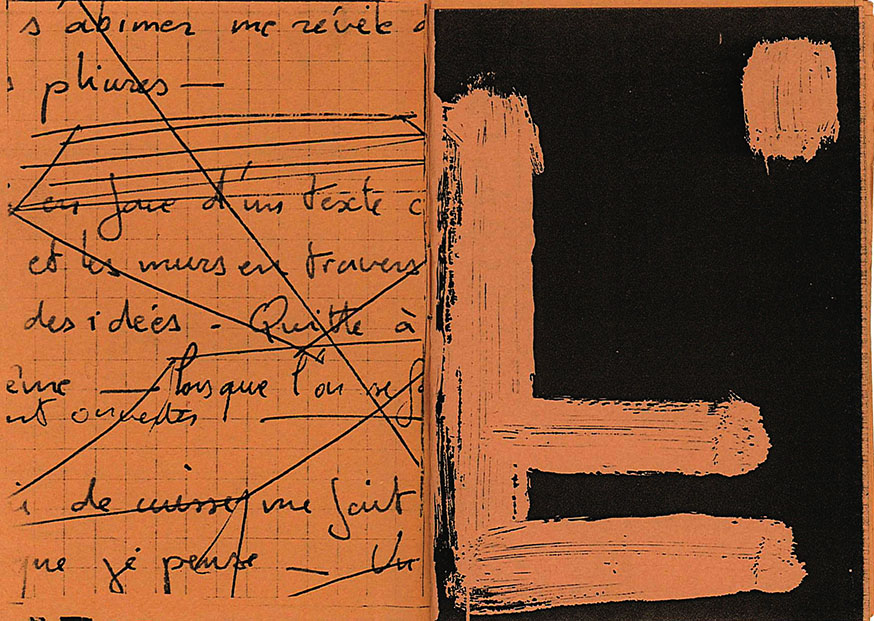 s'abimer me révèle
pliures —
en face d'un texte c
et les murs en travers
des idées - Quitte à
ême — lorsque l'on se
nt ouvertes
de cuisses me fait
que jé pense — Un